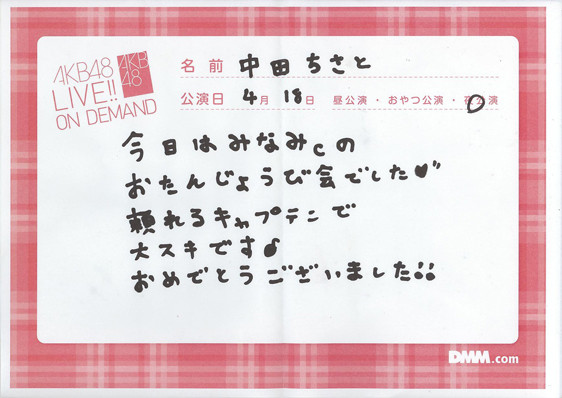 AKB48
LIVE!!
ON DEMAND
AKB
48
名前 中田ちさと
公演日 4月 18日 昼公演・おやつ公演・夜公演
今日はみなみcの
おたんじょうび会でした♥
頼れるキャプテンで
大スキです♪
おめでとうございました!!
DMM.com